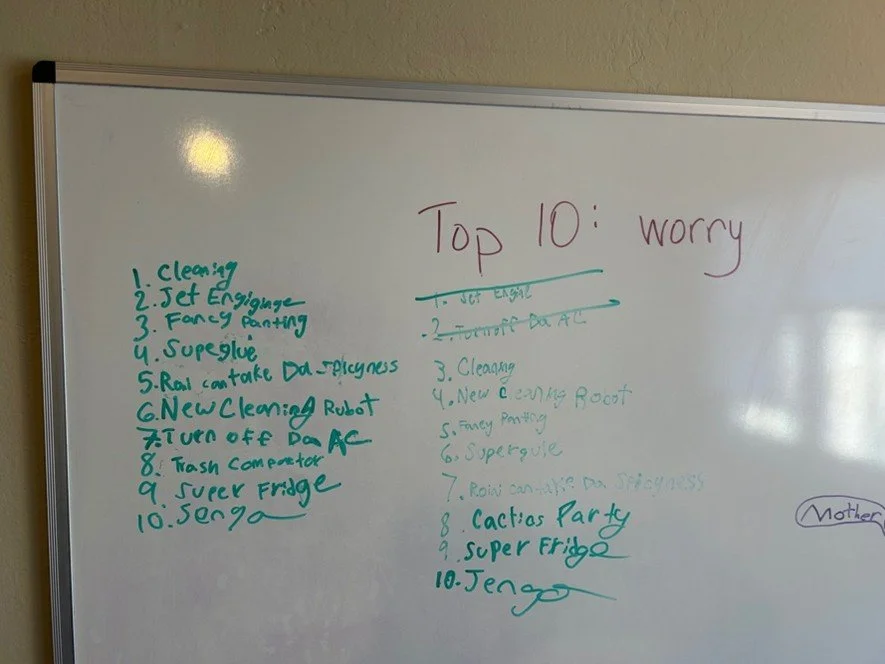 Top 10: worry
1. Cleaning
2. Jet Engiginge
3. Fancy Panting
4. Supeglue
5. Roni can take Da Spicyness
6. New Cleaning Robot
7. Turn off Da AC
8. Trash Compactor
9. Super Fridge
10. Jenga
1. Jet Engine
2. Turnoff Da AC
3. Cleaning
4. New Robot
5. Fancy Panting
6. Supergule
7. Da Spicyness
8 Cactios Party
9 Super Fridge
10. Jenga
Mother